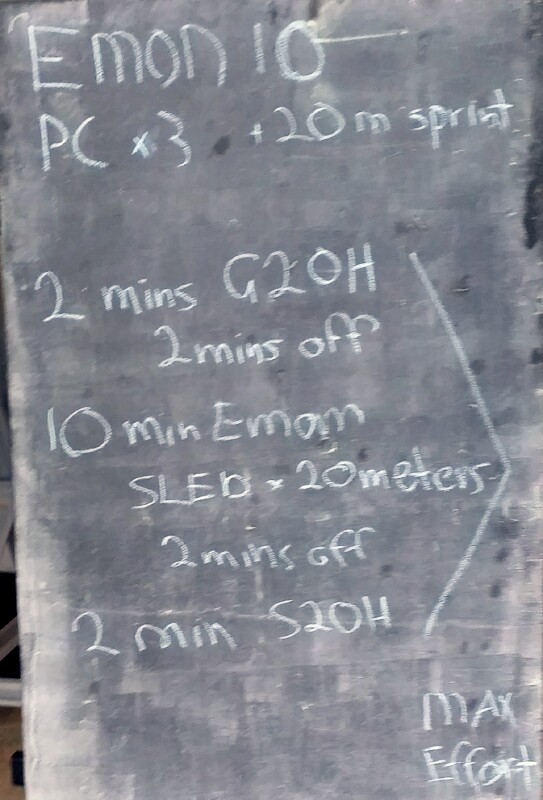 Emon 10
PC x 3 + 20m sprint
2 mins G2OH
2mins off
10 min Emom
SLED x 20meters
2mins off
2 min S2OH
MAx
Effort